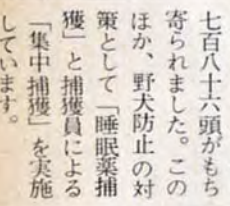 七百八十六頭がもち
寄られました。この
ほか、野犬防止の対
策として「睡眠薬捕
獲」と捕獲員による
「集中捕獲」を実施
しています。